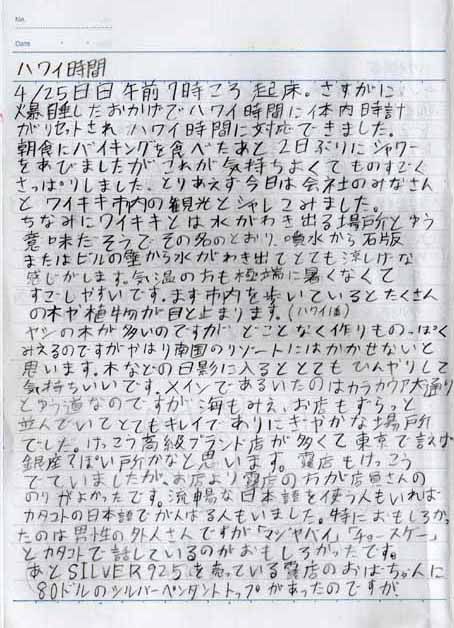 No.
Date
ハワイ時間
4/25日日 午前7時ころ 起床。さすがに
爆睡したおかげでハワイ時間に体内時計
がリセットされ ハワイ時間に対応できました。
朝食にバイキングを食べたあと 2日ぶりにシャワー
をあびましたがこれが気持ちよくてものすごく
さっぱりしました。とりあえず今日は会社のみなさん
と ワイキキ市内の観光とシャレこみました。
ちなみにワイキキとは水がわき出る場所とゆう
意味だそうで その名のとおり、噴水から石版
またはビルの壁から水がわき出てとても涼しげな
感じがします。気温のおも極端に暑くなくて
すごしやすいです。ます市内を歩いているとたくさん
の木や植物が目と止まります。(ハワイは)
ヤシの木が多いのですが、どことなく作りものっぽく
みえるのですがやはり南国のリゾートにはかかせないと
思います。木などの日影に入るととてもひんやりして
気持ちいいです。メインであるいたのはカラカウア大通り
とゆう道なのですが 海もみえ、お店もずらっと
並んでいてとてもキレイでありにぎやかな場所
でした。けっこう高級ブランド店が多くて東京で言えば
銀座てぽい所かなと思います。露店もけっこう
でていましたが、お店より露店の方が店員さんの
のりがよかったです。流暢な日本語を使う人もいれば
カタコトの日本語でがんばる人もいました。特におもしろかっ
たのは男性の外人さんですが「マジヤバイ」「チョースゲー」
とカタコトで話しているのがおもしろかったです。
あとSILVER925を売っている露店のおばちゃんに
80ドルのシルバーペンダントトップがあったのですが